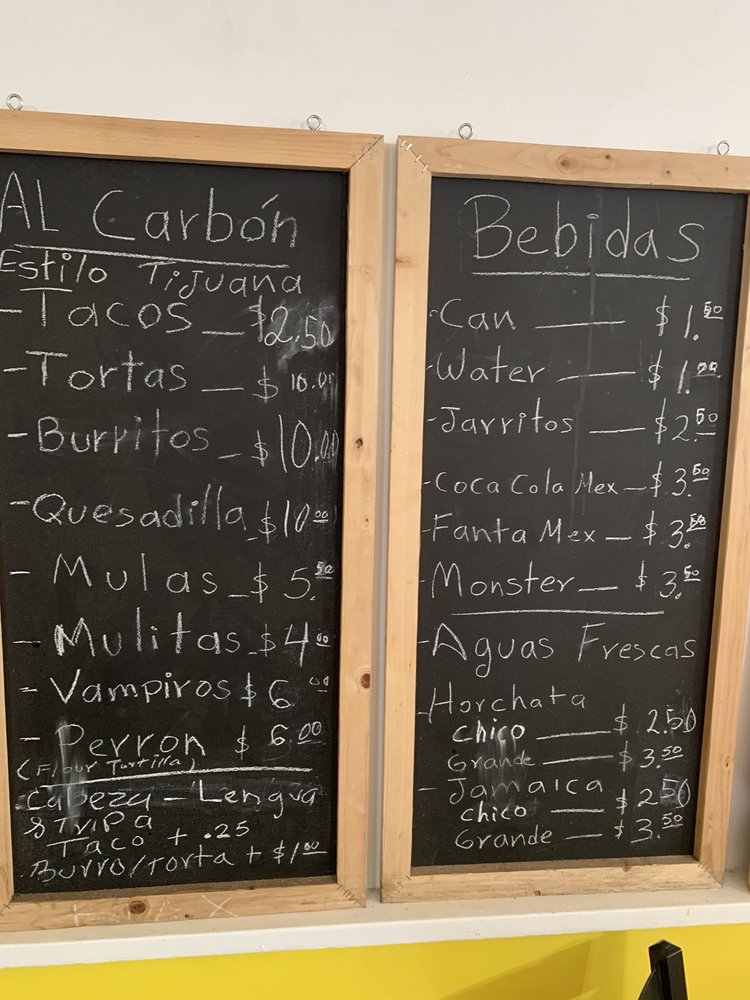 AL Carbón
Estilo Tijuana
- Tacos — $2.50
- Tortas — $ 10.00
- Burritos — $10.00
- Quesadilla — $10.00
- Mulas — $5.50
- Mulitas — $4.00
- Vampiros $6.00
- Perron $ 6.00
(Flour Tortilla)
Cabeza - Lengua
& Tripa
Taco + .25
Burro/Torta + $1.00
Bebidas
- Can — $1.50
- Water — $1.00
- Jarritos — $2.50
- Coca Cola Mex — $3.50
- Fanta Mex — $3.50
- Monster — $3.50
- Aguas Frescas
- Horchata
chico — $ 2.50
Grande — $3.50
- Jamaica
chico — $2.50
Grande — $3.50